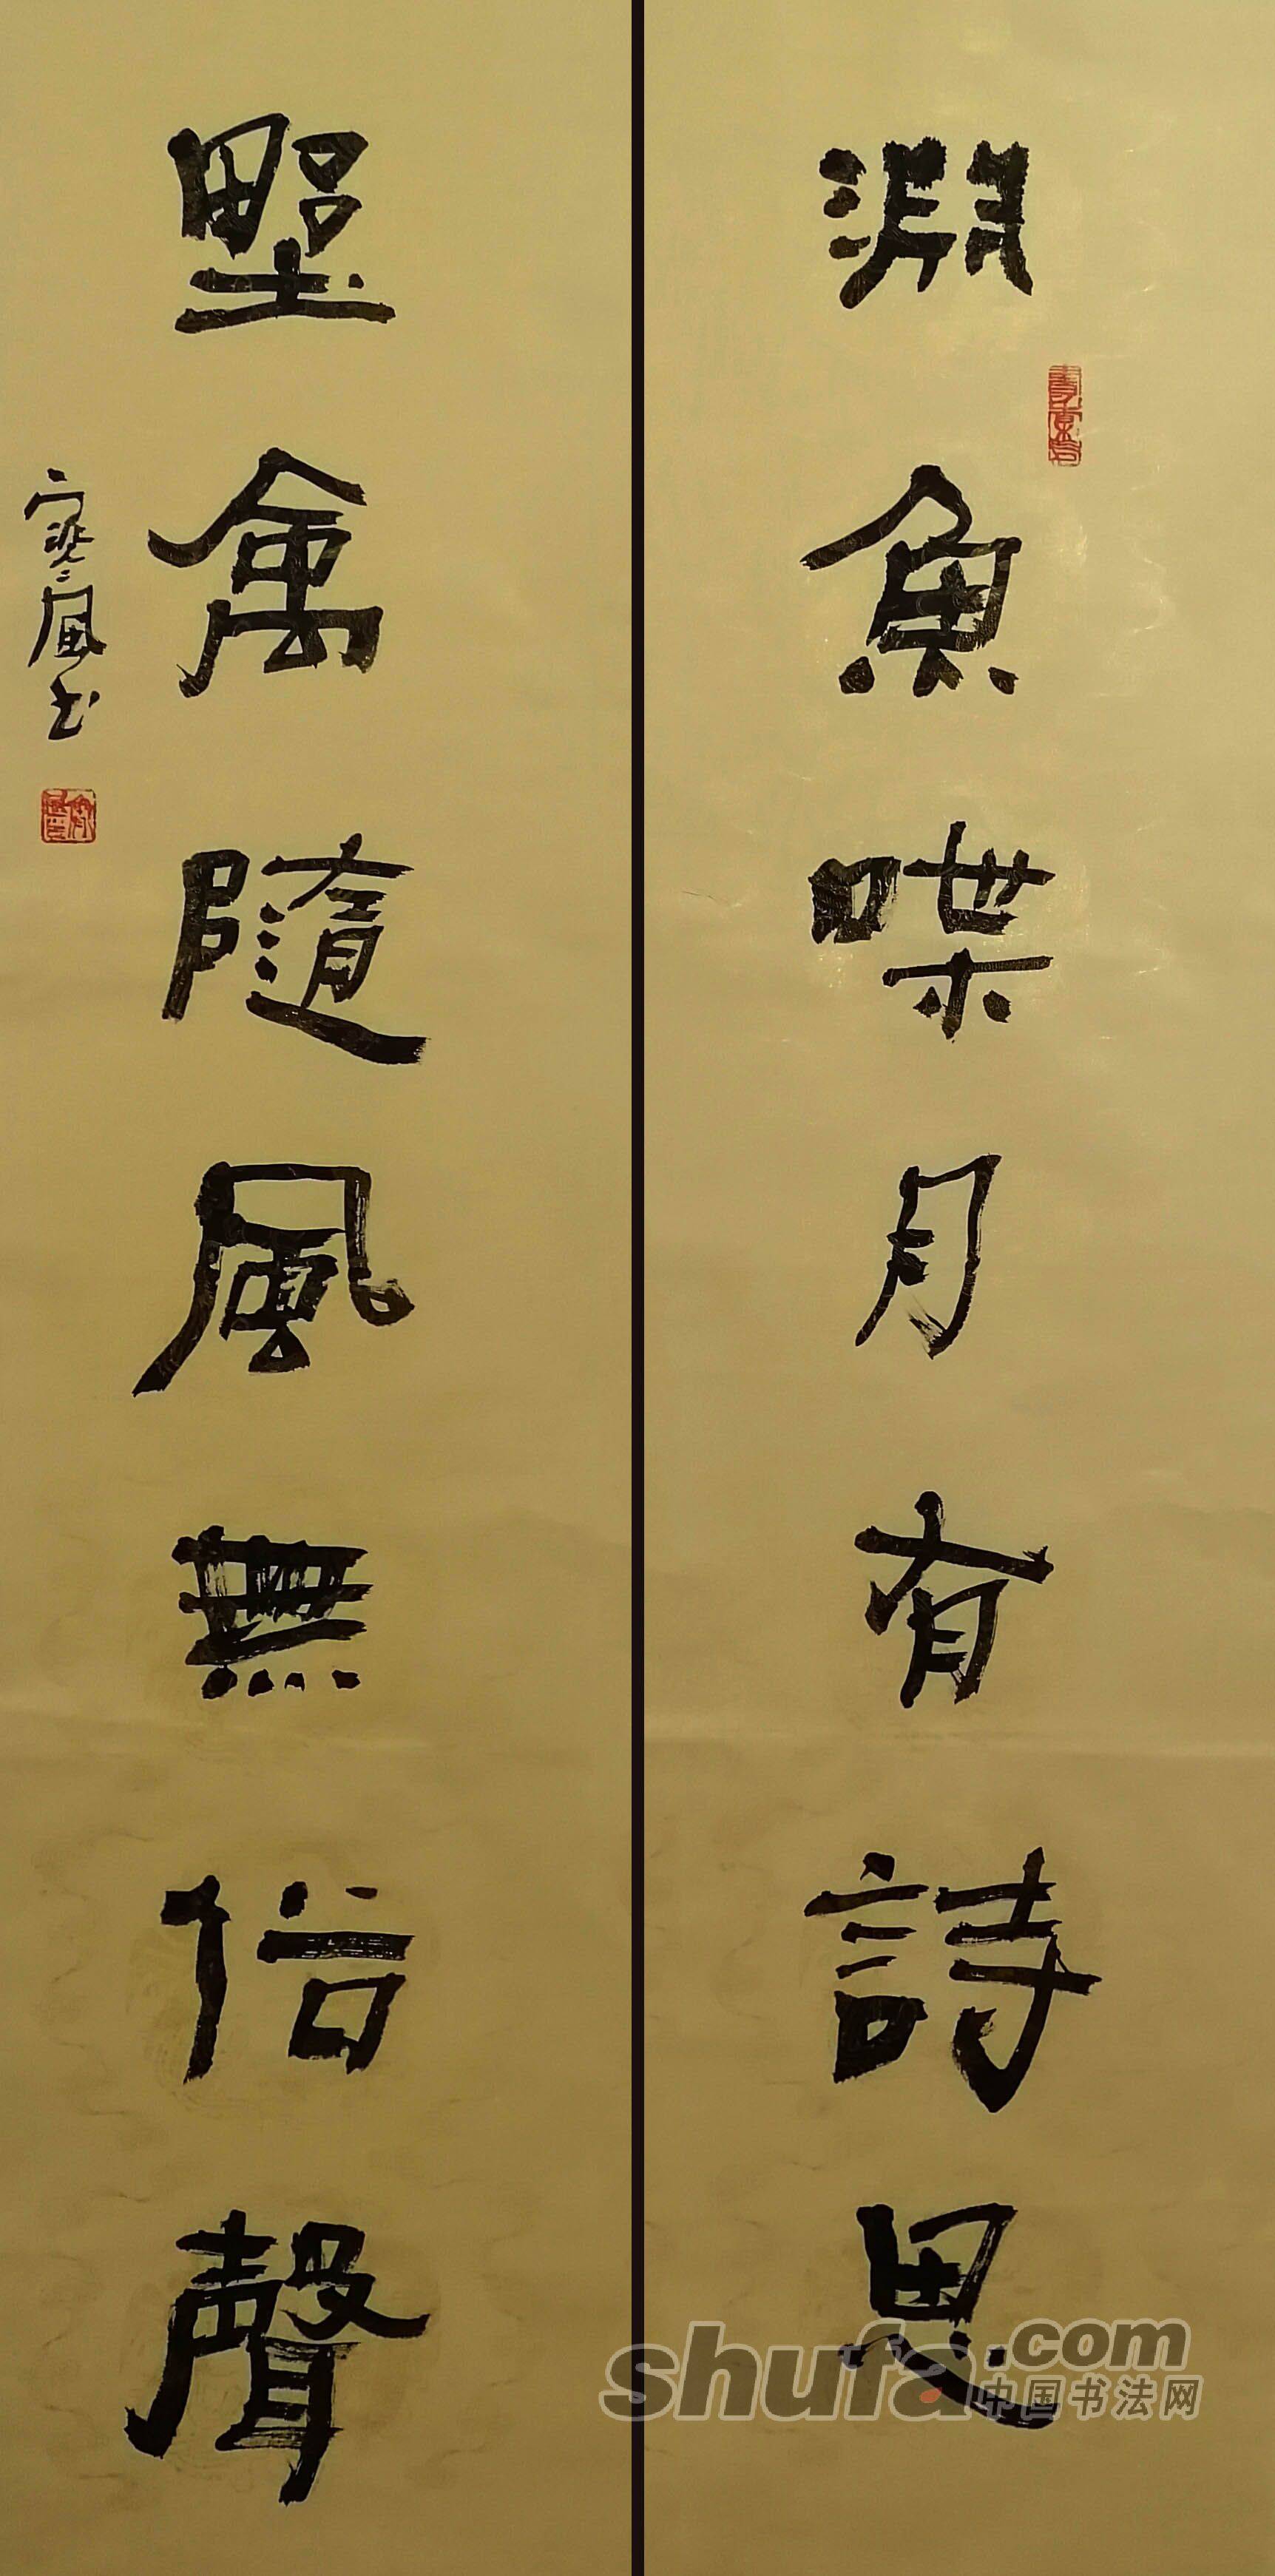 淵魚喋月有詩思
野禽隨風無俗聲
寒風书
shufa.com
中国书法网